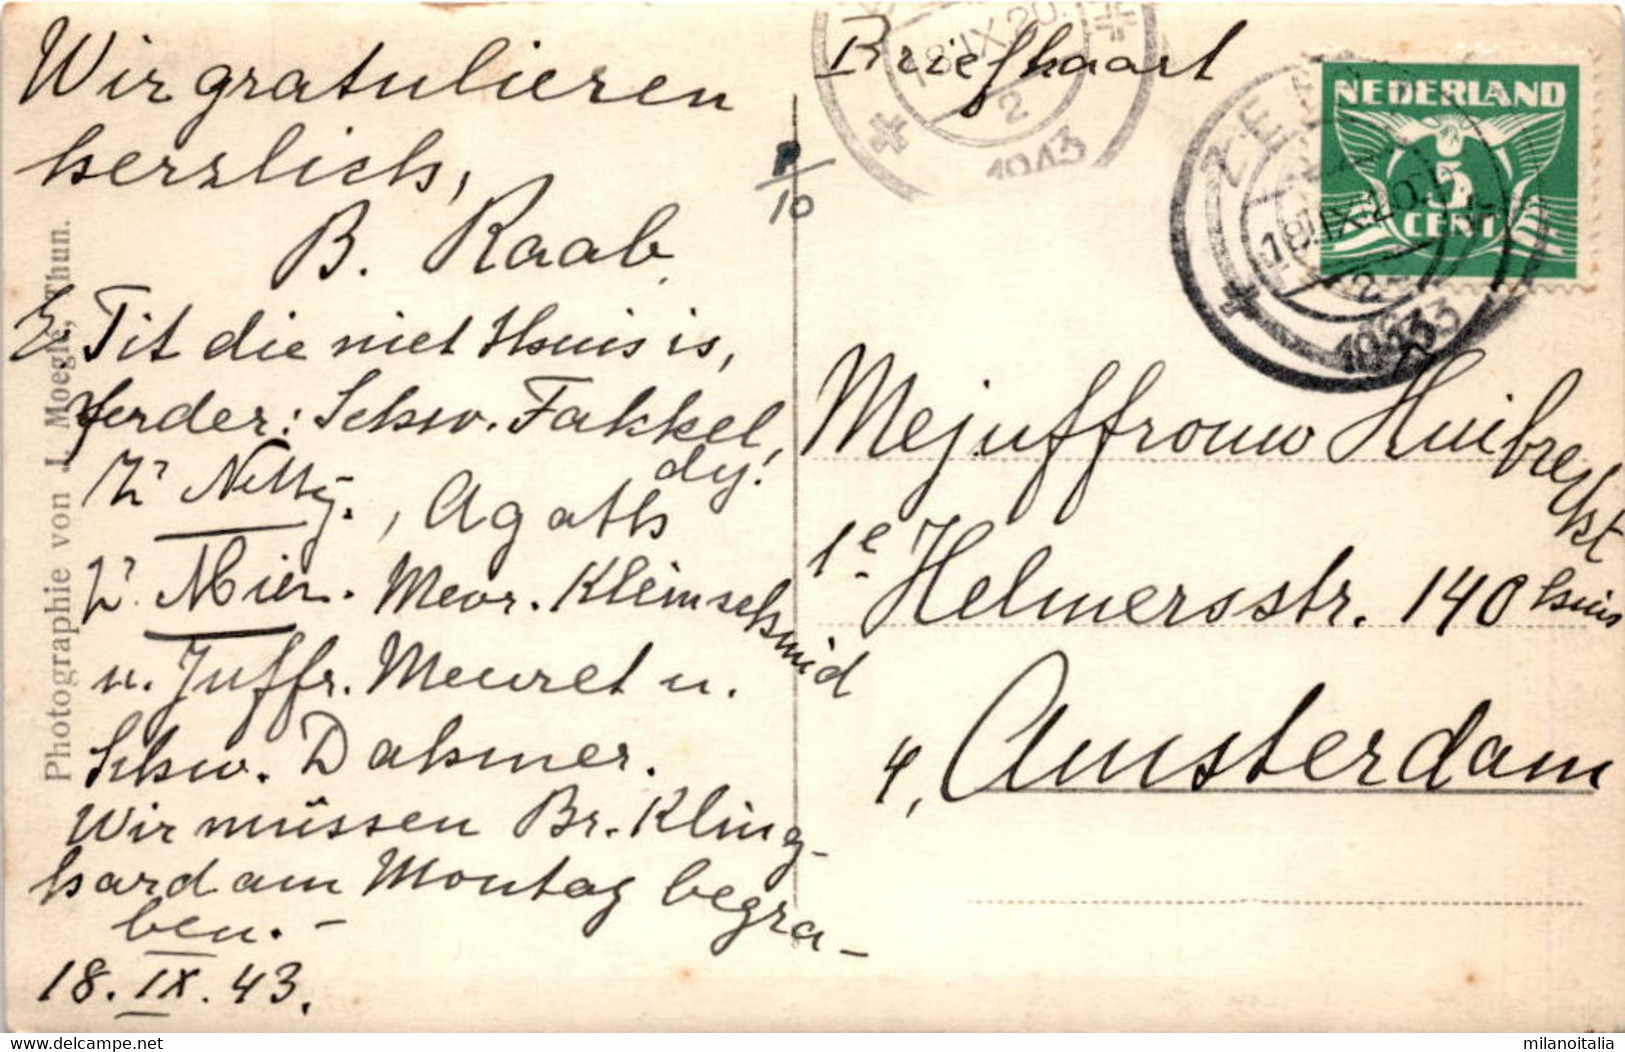 Wir gratulieren
herzlich,
B. Raab
E. Tit die niet thuis is,
ferder: Schw. Fakkel
dy!
Zr Netty., Agath
Zr. Mien. Mevr. Kleinschmid
u. Juffr. Meuret u.
Schw. Dahmer.
Wir müssen Br. Kling-
hard am Montag begra-
ben. -
18. IX. 43.
Photographie von J. Moeglé, Thun.
10
Briefkaart
18.IX.20.
2
1943
NEDERLAND
5
CENT
ZE
18.IX.20.
2
1943
Mejuffrouw Huibregtst
1e Helmersstr. 140 huis
Amsterdam
delcampe.net
milanoitalia